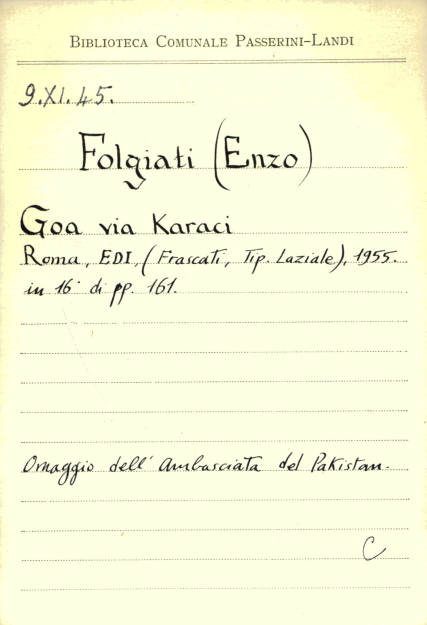 BIBLIOTECA COMUNALE PASSERINI-LANDI
9.XI.45.
Folgiati (Enzo)
Goa via Karaci
Roma, EDI, (Frascati, Tip. Laziale), 1955.
in 16° di pp. 161.
Omaggio dell'Ambasciata del Pakistan.
C